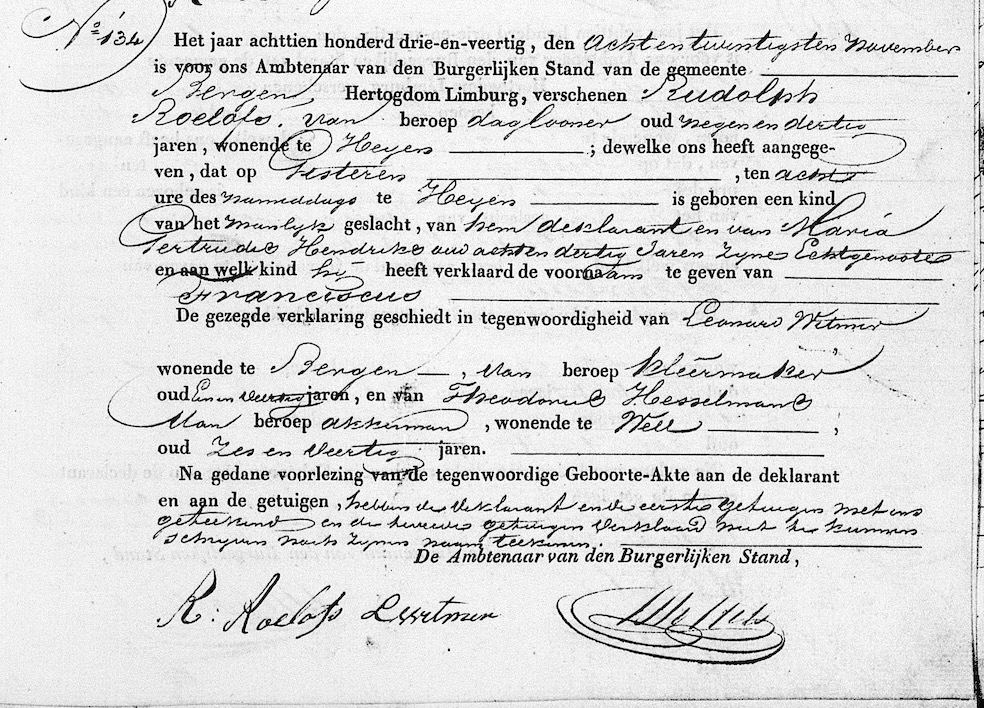 N.o 134
Het jaar achttien honderd drie-en-veertig, den Achtentwentigsten November
is voor ons Ambtenaar van den Burgerlijken Stand van de gemeente
Bergen Hertogdom Limburg, verschenen Rudolph
Roelofs, van beroep daglooner oud negen en dertig
jaren, wonende te Heyen ; dewelke ons heeft aangege-
ven, dat op Gisteren , ten achts
ure des namiddags te Heyen is geboren een kind
van het Manlijk geslacht, van hem deklarant en van Maria
Gertrudis Hendriks oud acht en dertig Jaren Zyne Echtgenoote
en aan welk kind hij heeft verklaard de voornaam te geven van
Franciscus
De gezegde verklaring geschiedt in tegenwoordigheid van Leonard Witmer
wonende te Bergen , van beroep kleermaker
oud Een en Veertig jaren, en van Theodorus Hesselmans
Van beroep akkerman , wonende te Well ,
oud Zes en Veertig jaren.
Na gedane voorlezing van de tegenwoordige Geboorte-Akte aan de deklarant
en aan de getuigen, hebben de deklarant en de eerste getuigen met ons
geteekend en de tweede getuigen Verklaard niet te kunnen
schryven noch Zynen naam teekenen.
De Ambtenaar van den Burgerlijken Stand,
R: Roelofs L Witmer